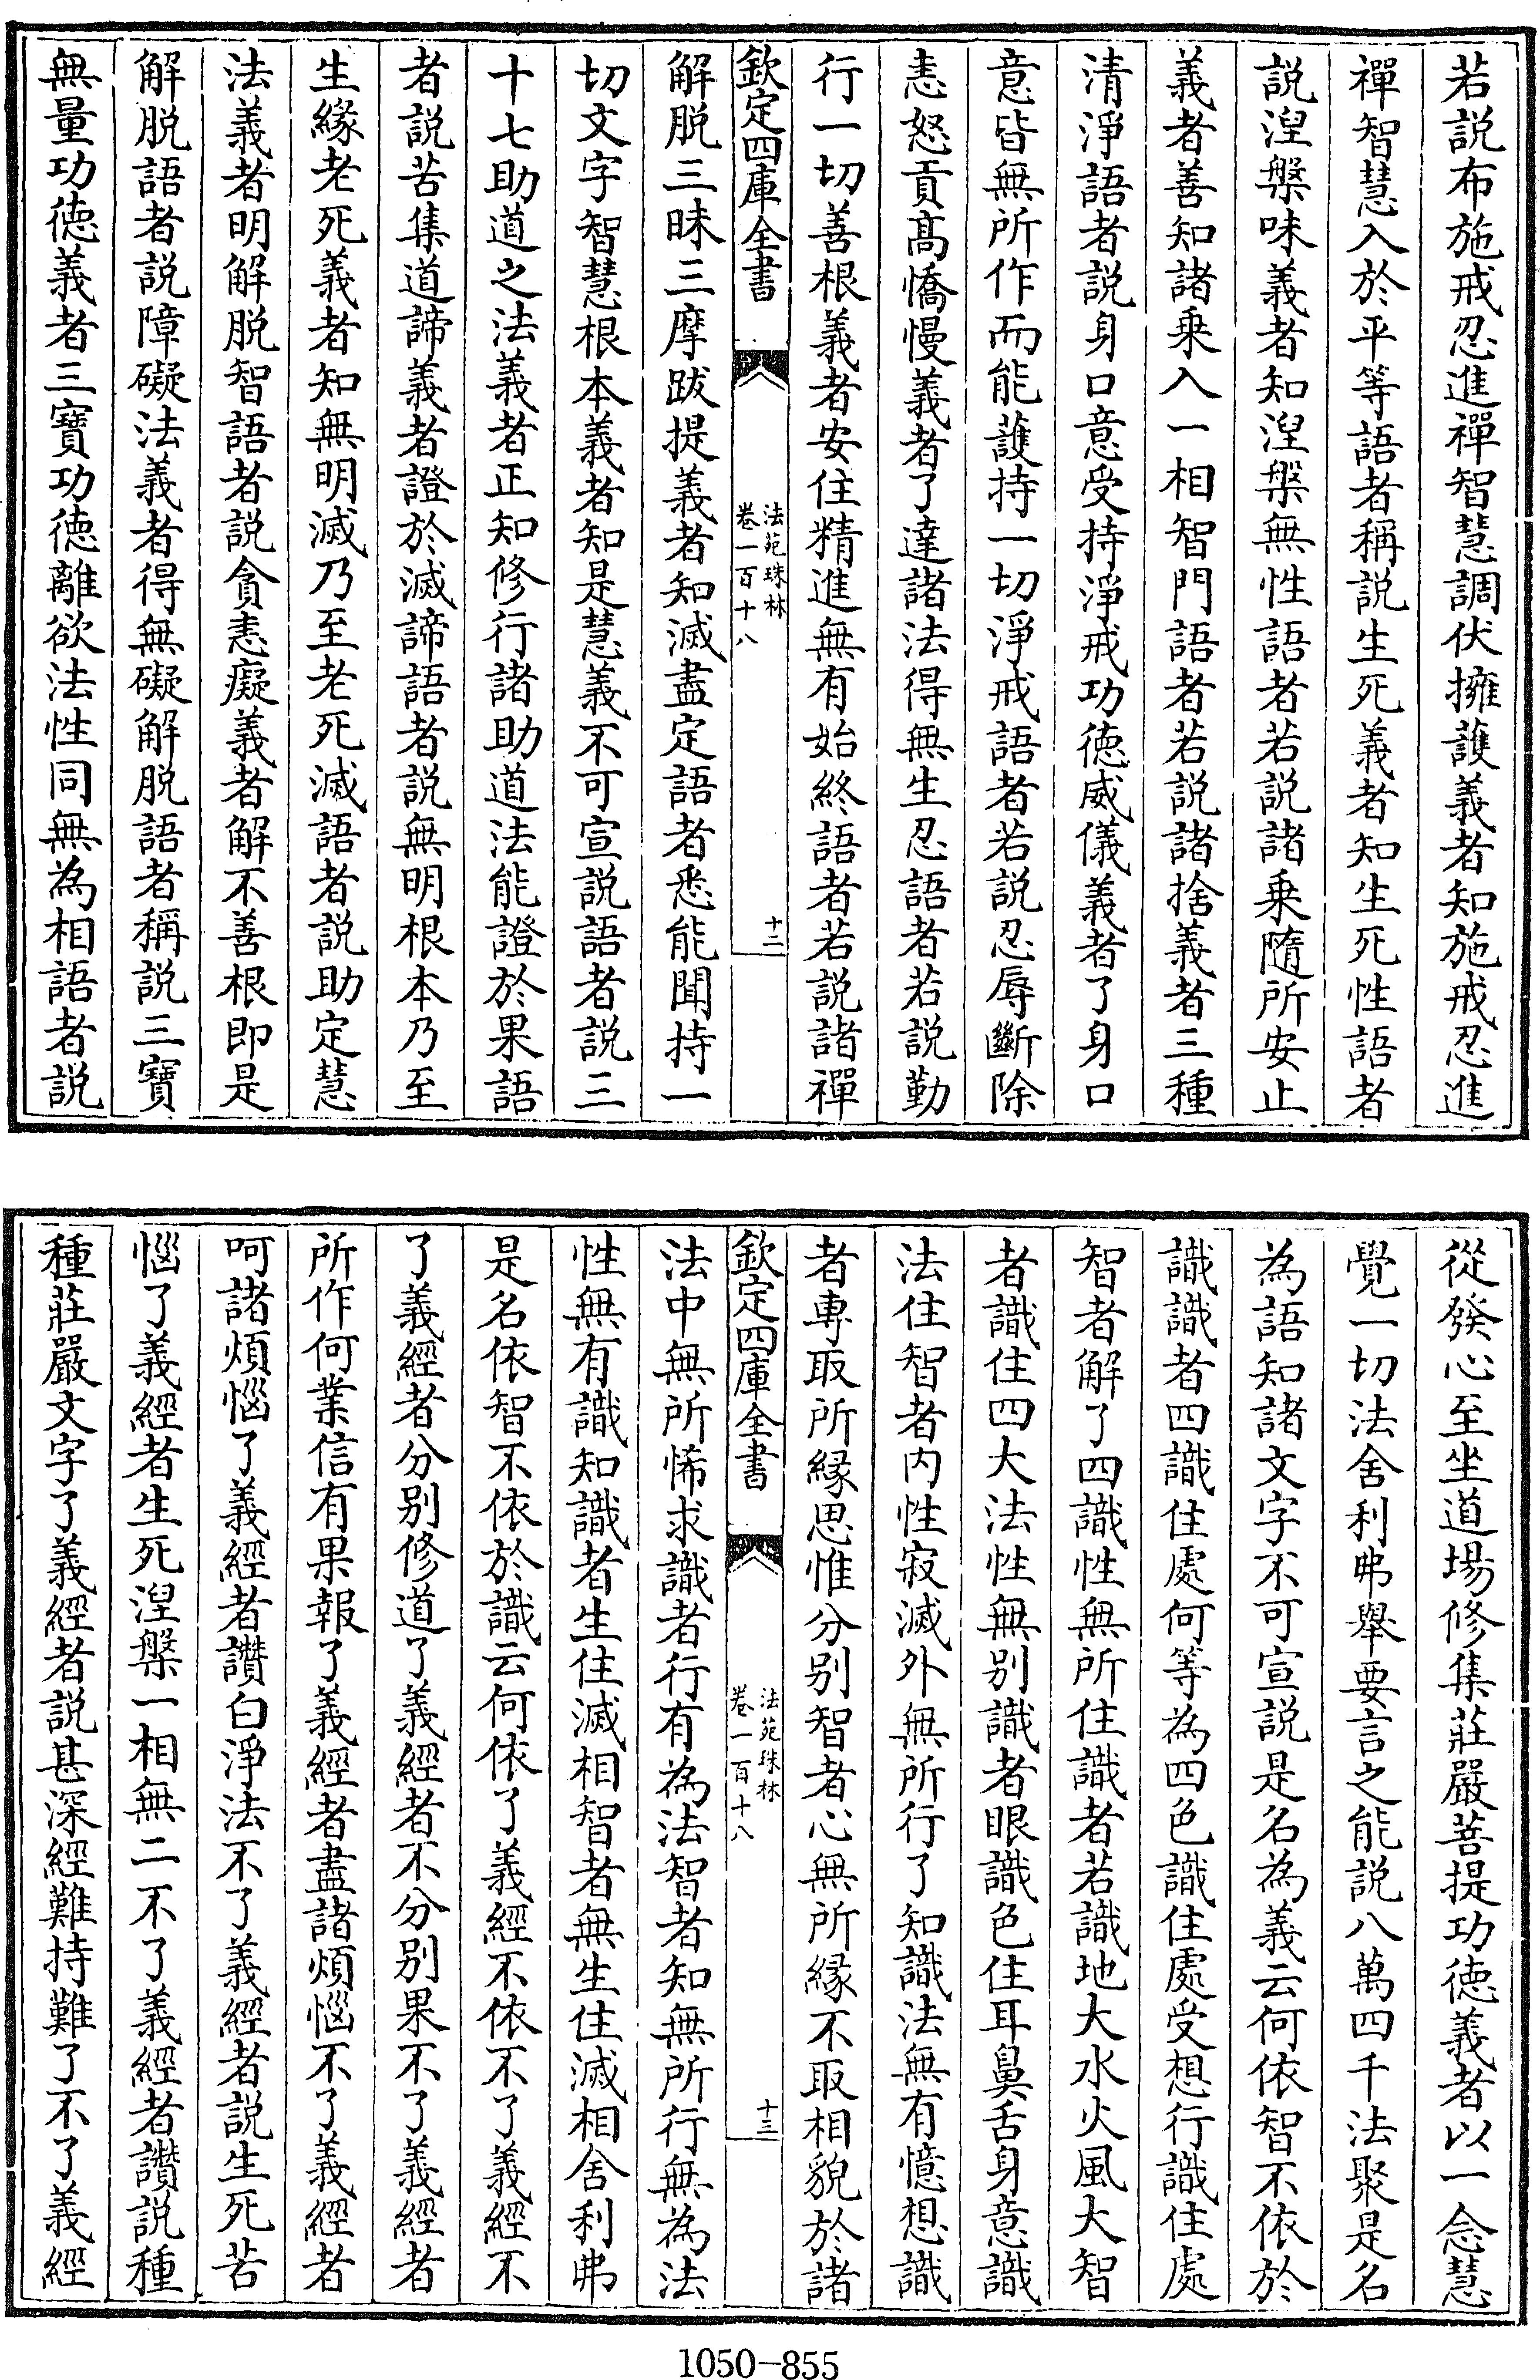 若説布施戒忍進禪智慧調伏擁䕶義者知施戒忍進
禪智慧入於平等語者稱説生死義者知生死性語者
説涅槃味義者知涅槃無性語者若説諸乗隨所安止
義者善知諸乗入一相智門語者若説諸捨義者三種
清淨語者説身口意受持淨戒功徳威儀義者了身口
意皆無所作而能䕶持一切淨戒語者若説忍辱斷除
恚怒貢髙憍慢義者了達諸法得無生忍語者若説勤
行一切善根義者安住精進無有始終語者若説諸禪
欽定四庫全書
法苑珠林
卷一百十八
十二
解脱三昧三摩跋提義者知滅盡定語者悉能聞持一
切文字智慧根本義者知是慧義不可宣説語者説三
十七助道之法義者正知修行諸助道法能證於果語
者説苦集道諦義者證於滅諦語者説無明根本乃至
生縁老死義者知無明滅乃至老死滅語者説助定慧
法義者明解脱智語者説貪恚癡義者解不善根即是
解脱語者説障礙法義者得無礙解脱語者稱説三寶
無量功徳義者三寶功徳離欲法性同無為相語者説
從發心至坐道場修集莊嚴菩提功徳義者以一念慧
覺一切法舍利弗舉要言之能説八萬四千法聚是名
為語知諸文字不可宣説是名為義云何依智不依於
識識者四識住處何等為四色識住處受想行識住處
智者解了四識性無所住識者若識地大水火風大智
者識住四大法性無别識者眼識色住耳鼻舌身意識
法住智者内性寂滅外無所行了知識法無有憶想識
者専取所縁思惟分别智者心無所縁不取相貌於諸
欽定四庫全書
法苑珠林
卷一百十八
十三
法中無所悕求識者行有為法智者知無所行無為法
性無有識知識者生住滅相智者無生住滅相舍利弗
是名依智不依於識云何依了義經不依不了義經不
了義經者分别修道了義經者不分别果不了義經者
所作何業信有果報了義經者盡諸煩惱不了義經者
呵諸煩惱了義經者讃白淨法不了義經者説生死苦
惱了義經者生死涅槃一相無二不了義經者讃説種
種莊嚴文字了義經者説甚深經難持難了不了義經
1050-855